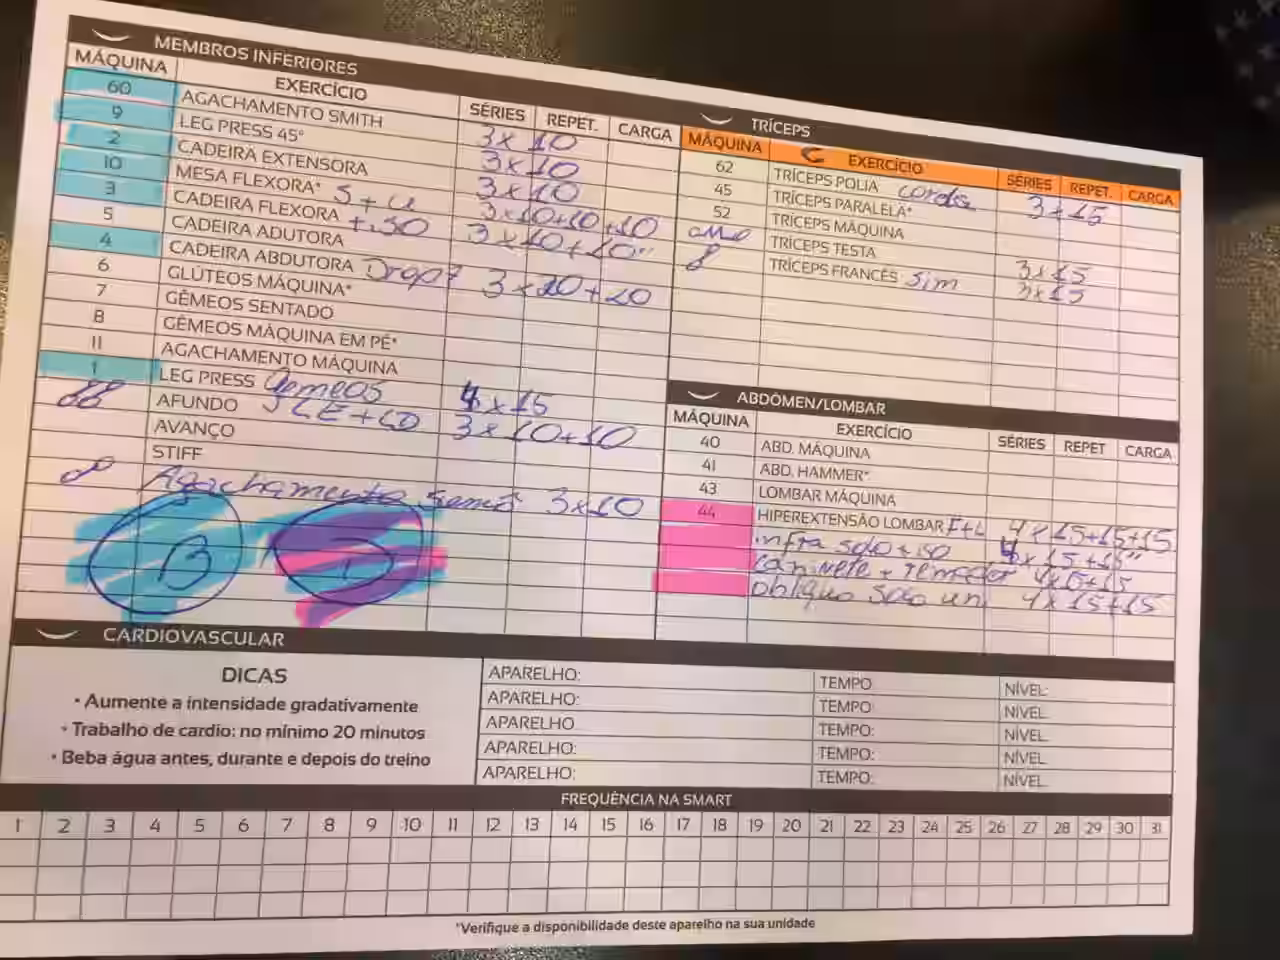 MEMBROS INFERIORES
MÁQUINA EXERCÍCIO SÉRIES REPET. CARGA
60 AGACHAMENTO SMITH 3x10
9 LEG PRESS 45° 3x10
2 CADEIRA EXTENSORA 3x10
10 MESA FLEXORA* S+U 3x10+10+10
3 CADEIRA FLEXORA +.30 3x10+10"
5 CADEIRA ADUTORA
4 CADEIRA ABDUTORA Drop 3x20+20
6 GLÚTEOS MÁQUINA*
7 GÊMEOS SENTADO
8 GÊMEOS MÁQUINA EM PÉ*
11 AGACHAMENTO MÁQUINA
1 LEG PRESS Gemeos 4x15
AFUNDO 3x10+10
AVANÇO
STIFF
Agachamento 3x10
B
TRÍCEPS
MÁQUINA C EXERCÍCIO SÉRIES REPET. CARGA
62 TRÍCEPS POLIA corda 3x15
45 TRÍCEPS PARALELA*
52 TRÍCEPS MÁQUINA
TRÍCEPS TESTA 3x15
TRÍCEPS FRANCÊS sim 3x15
ABDÔMEN/LOMBAR
MÁQUINA EXERCÍCIO SÉRIES REPET CARGA
40 ABD. MÁQUINA
41 ABD. HAMMER*
43 LOMBAR MÁQUINA
44 HIPEREXTENSÃO LOMBAR F+L 4x15+15+15
infra solo + iso 4x15+15"
canivete + remador 4x15+15
obliquo solo uni 4x15+15
CARDIOVASCULAR
DICAS
• Aumente a intensidade gradativamente
• Trabalho de cardio: no mínimo 20 minutos
• Beba água antes, durante e depois do treino
APARELHO: TEMPO NÍVEL:
APARELHO: TEMPO: NÍVEL
APARELHO TEMPO: NÍVEL
APARELHO: TEMPO: NÍVEL
APARELHO: TEMPO: NÍVEL
FREQUÊNCIA NA SMART
1 2 3 4 5 6 7 8 9 10 11 12 13 14 15 16 17 18 19 20 21 22 23 24 25 26 27 28 29 30 31
*Verifique a disponibilidade deste aparelho na sua unidade